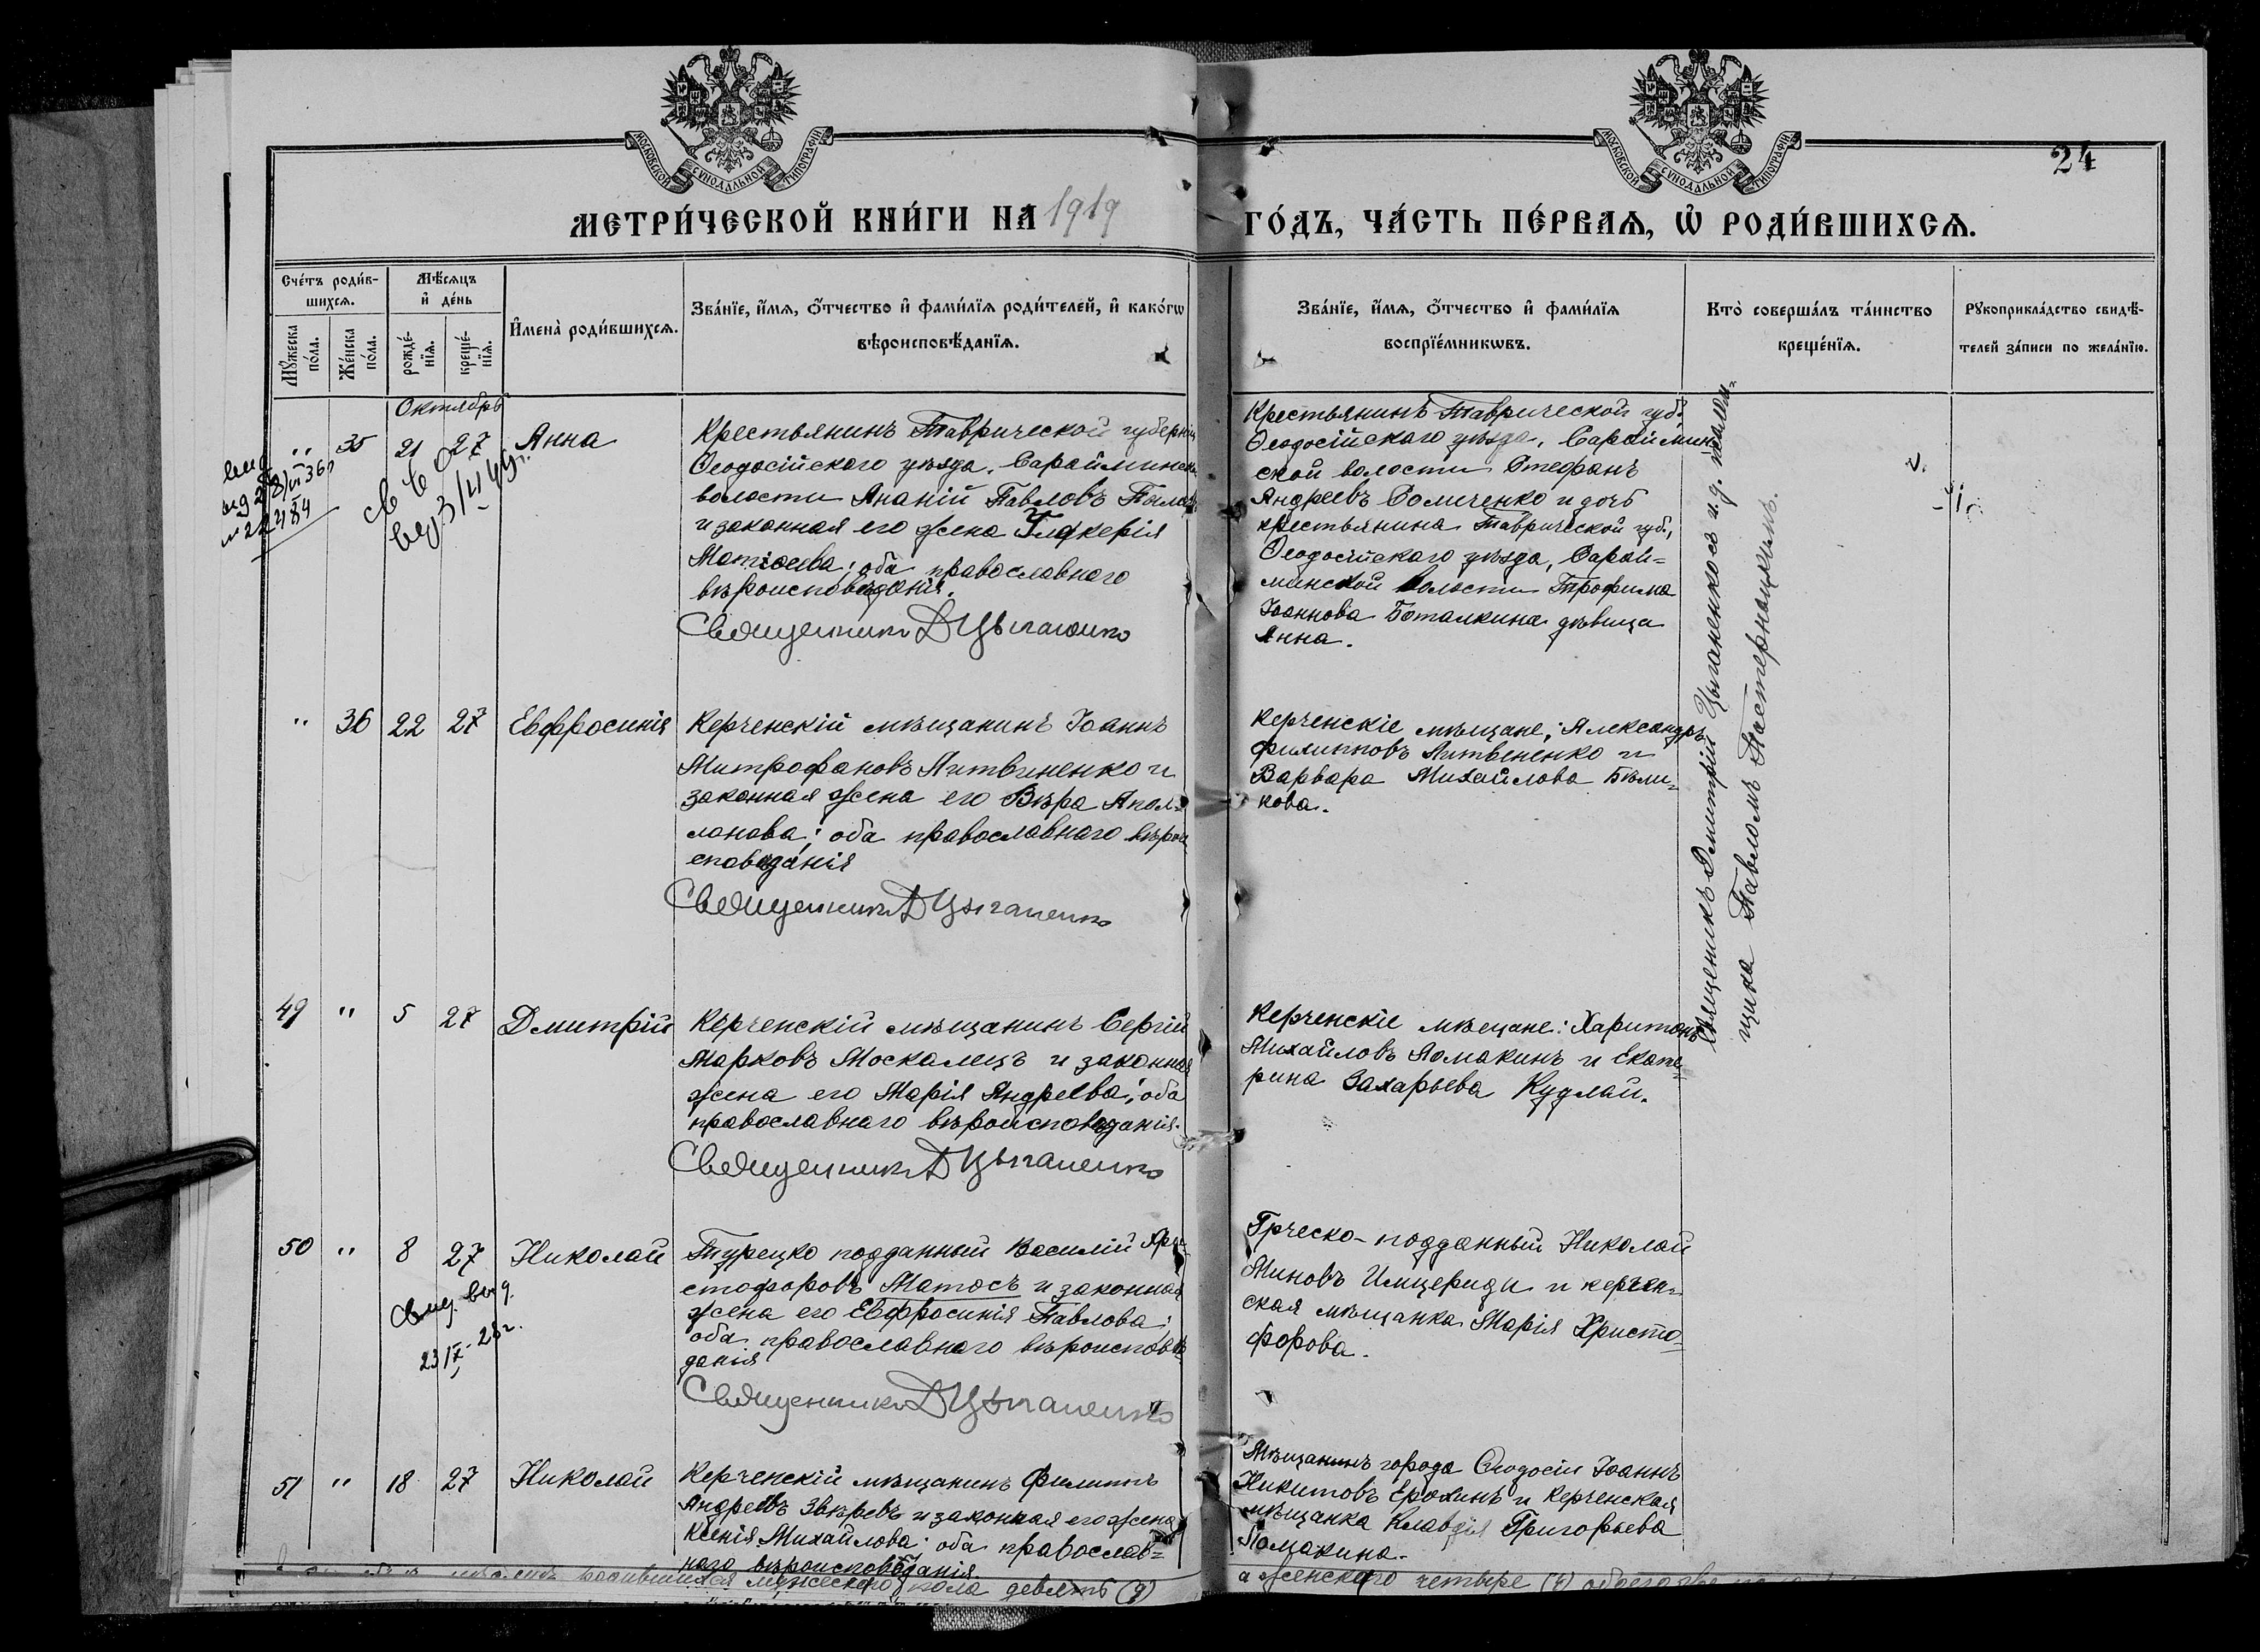 МОСКОВСКОЙ СѴНОДАЛЬНОЙ ТИПОГРАФІИ
МОСКОВСКОЙ СѴНОДАЛЬНОЙ ТИПОГРАФІИ
24
МЕТРИ́ЧЕСКОЙ КНИ́ГИ НА 1919 ГО́ДЪ, ЧА́СТЬ ПЕ́РВАѦ, Ѡ҆ РОДИ́ВШИХСѦ.
Сче́тъ роди́в-
шихсѧ.
Мꙋ́жеска
по́ла.
Же́нска
по́ла.
Мѣ́сѧцъ
и҆ де́нь
рожде́-
нїѧ.
креще́-
нїѧ.
И҆мена̀ роди́вшихсѧ.
Зва́нїе, и҆́мѧ, ѻ҆́тчество и҆ фами́лїѧ роди́телей, и҆ како́гѡ
вѣроисповѣ́данїѧ.
Зва́нїе, и҆́мѧ, ѻ҆́тчество и҆ фами́лїѧ
воспрїе́мникѡвъ.
Кто̀ соверша́лъ та́инство
креще́нїѧ.
Рꙋкоприкла́дство свидѣ́-
телей за́писи по жела́нїю.
Октябрь
" 35 21 27 Анна
Крестьянинъ Таврической губерніи
Ѳеодосійскаго уѣзда, Сарайминской
волости Ананій Павловъ
и законная его жена Гликерія
оба православнаго
вѣроисповѣданія.
Священникъ Д Цыганенко
Крестьянинъ Таврической губ.
Ѳеодосійскаго уѣзда, Сараймин
ской волости Стефанъ
Андреевъ Соличенко и дочь
крестьянина Таврической губ.,
Ѳеодосійскаго уѣзда, Сарай=
минской волости Трофима
Іоаннова Боталкина дѣвица
Анна.
Священникъ Дмитрій Цыганенко съ и.д. псалом=
щика Павломъ Пастернацкимъ.
" 36 22 27 Евфросинія
Керченскій мѣщанинъ Іоаннъ
Митрофановъ Литвиненко и
законная жена его Вѣра Апол=
лонова; оба православнаго вѣрои
споведанія
Священникъ Д Цыганенко
Керченскіе мѣщане; Александръ
Филипповъ Литвененко и
Варвара Михайлова Бѣли=
кова.
49 " 5 27 Дмитрій
Керченскій мѣщанинъ Сергій
Марковъ Москалецъ и законная
жена его Марія Андреева; оба
православнаго вѣроисповеданія.
Священникъ Д Цыганенко
Керченскіе мѣщане: Харитонъ
Михайловъ Ломакинъ и Екате=
рина Захарьева Кудлай.
50 " 8 27 Николай
Свид. выд.
23/IX-28г.
Турецко подданный Василій Хри
стофоровъ Матосъ и законная
жена его Евфросинія Павлова;
оба православнаго вѣроисповѣ
данія
Священникъ Д Цыганенко
Грческо-подданный Николай
Миновъ и керчен=
ская мѣщанка Марія Христо=
форова.
51 " 18 27 Николай
Керченскій мѣщанинъ Филиппъ
Андреевъ Звѣревъ и законная его жена
Ксенія Михайлова; оба православ=
наго вѣроисповѣданія.
Мѣщанинъ города Ѳеодосіи Іоаннъ
Никитовъ Ерохинъ и Керченская
мѣщанка Клавдія Григорьева
Ломакина.
родившихся мужескаго пола девять (9)
а женскаго четыре (4)